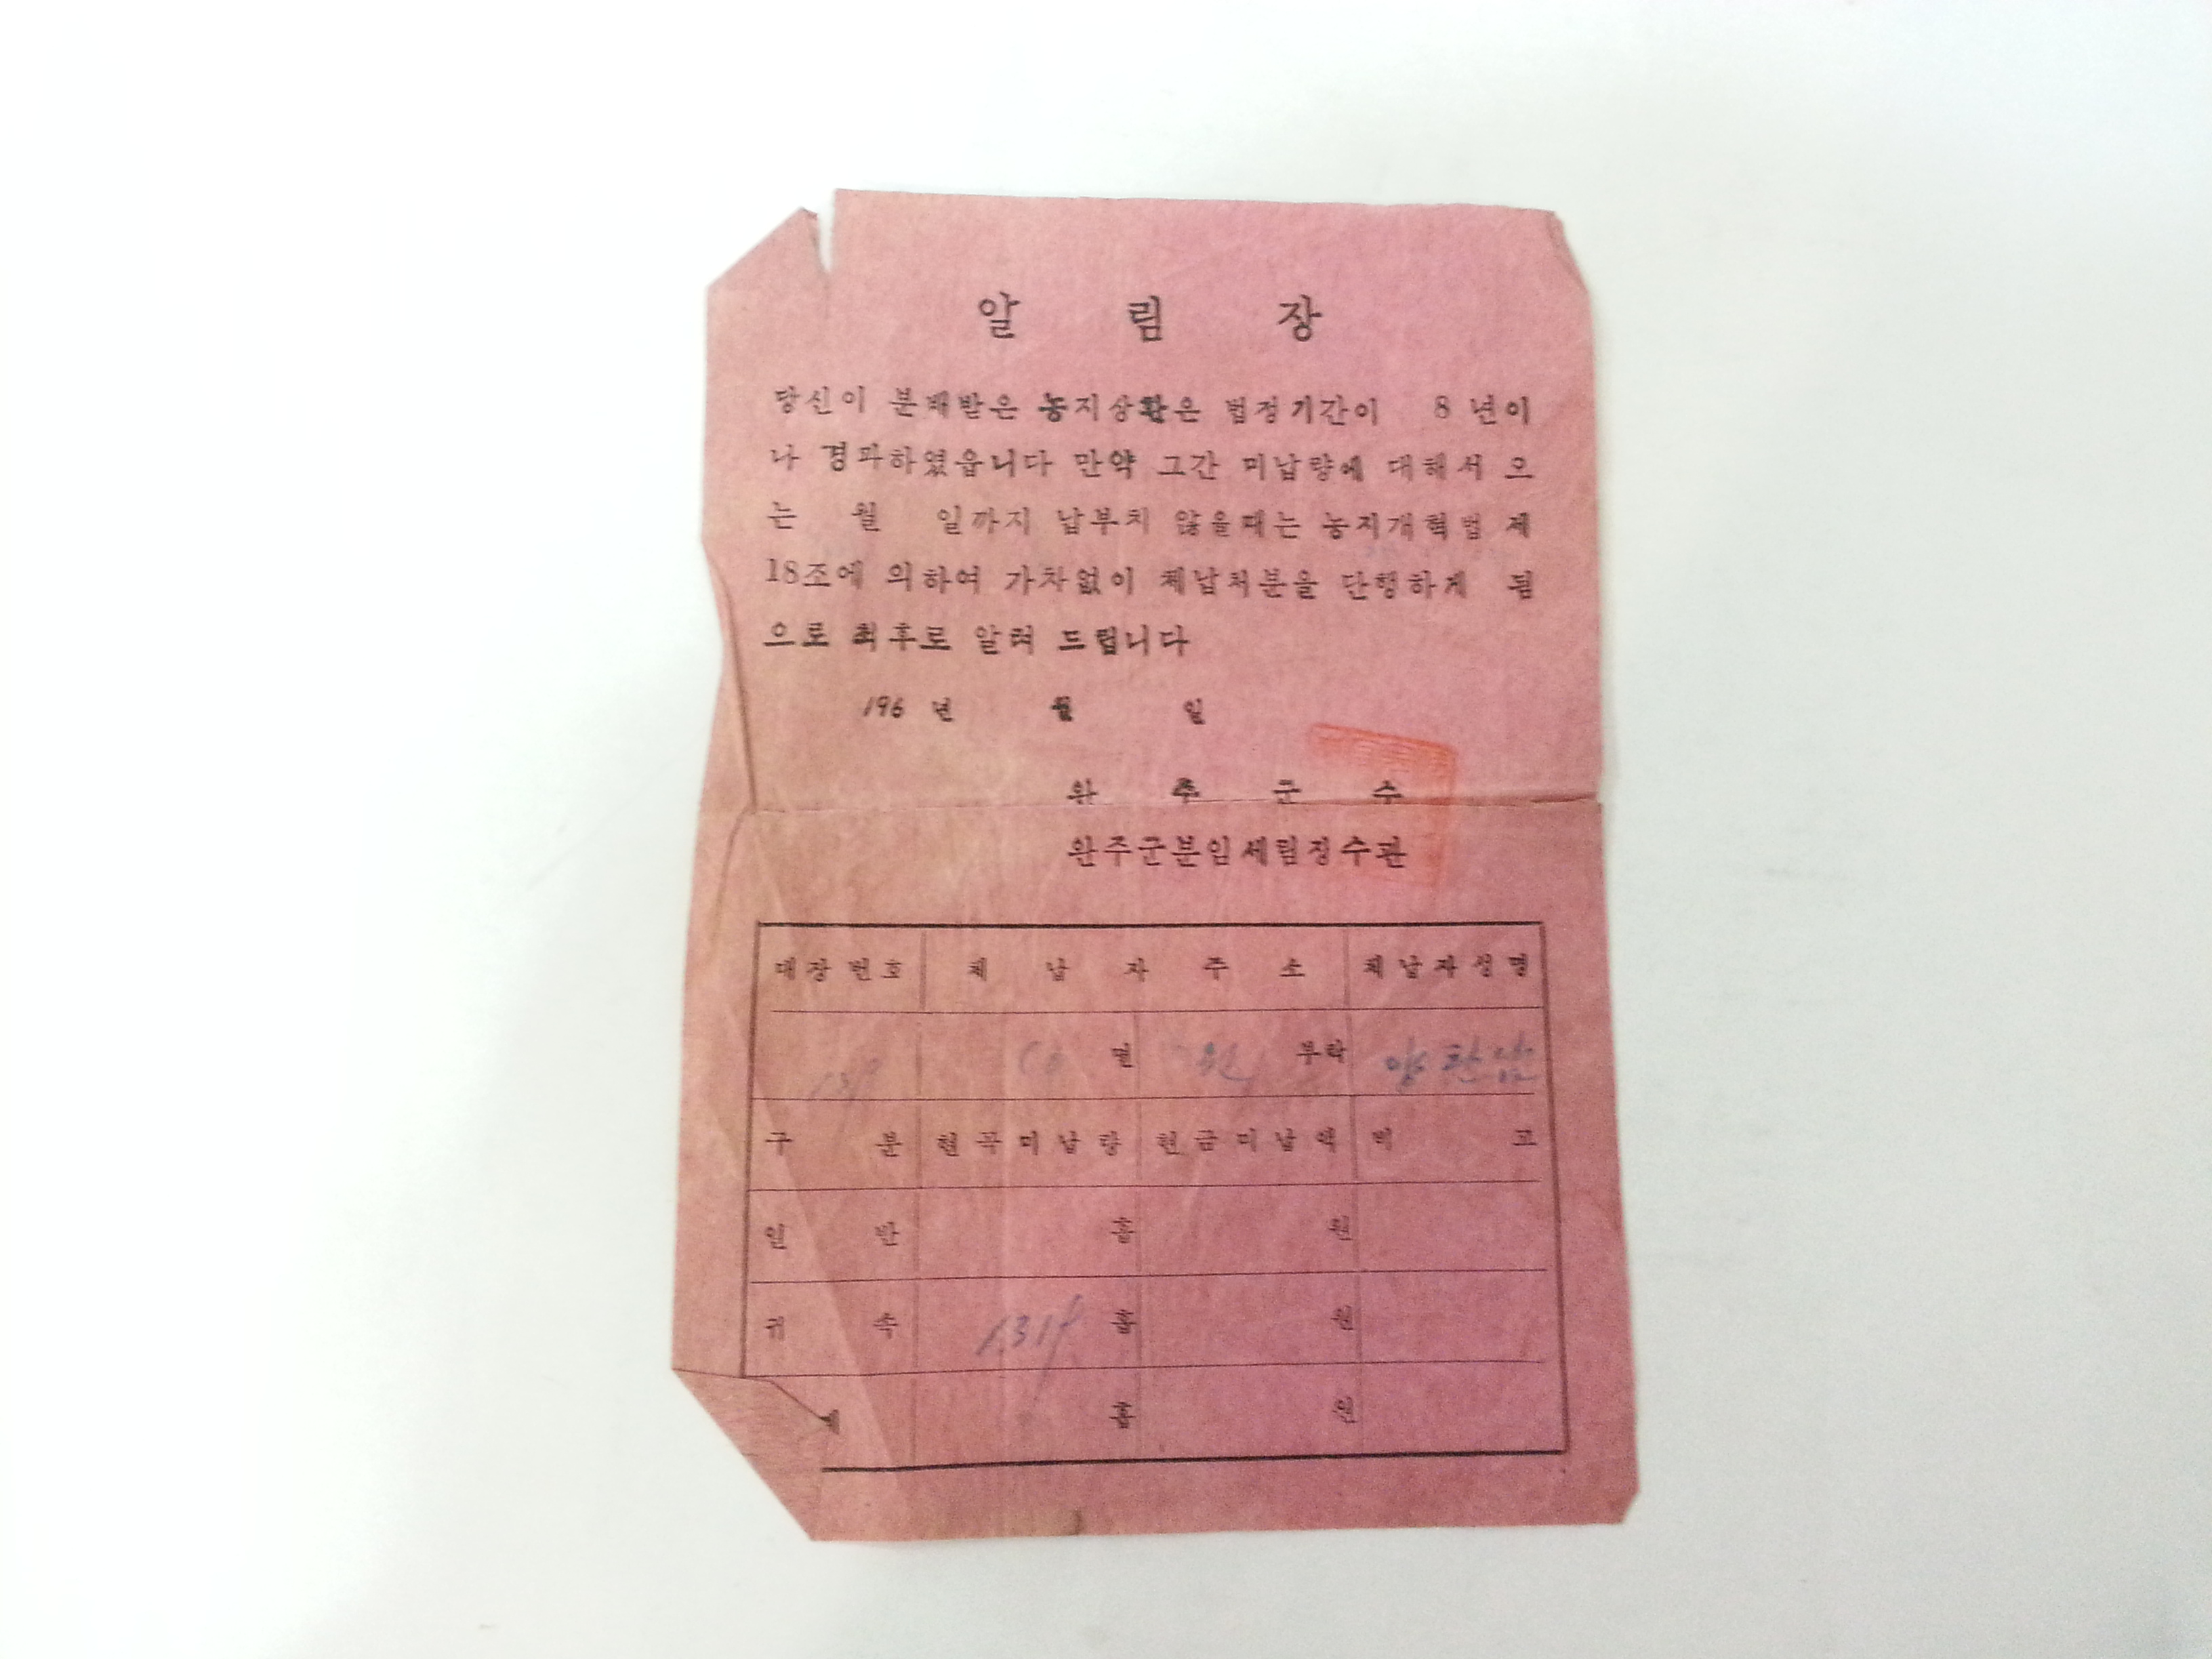 알 림 장
당신이 분배받은 농지상환은 법정기간이 8 년이
나 경과하였읍니다 만약 그간 미납량에 대해서 오
는 월 일까지 납부치 않을때는 농지개혁법 제
18조에 의하여 가차없이 체납처분을 단행하게 됨
으로 최후로 알려 드립니다
196 년 월 일
완 주 군 수
완주군분임세림징수관
대장번호 체 납 자 주 소 체납자성명
면 부락
구 분 현곡미납량 현금미납액 비 고
일 반 홉 원
귀 속 1319 홉 원
계 홉 원